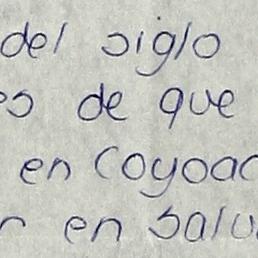 del siglo
es de que
en Coyoac
r en salu